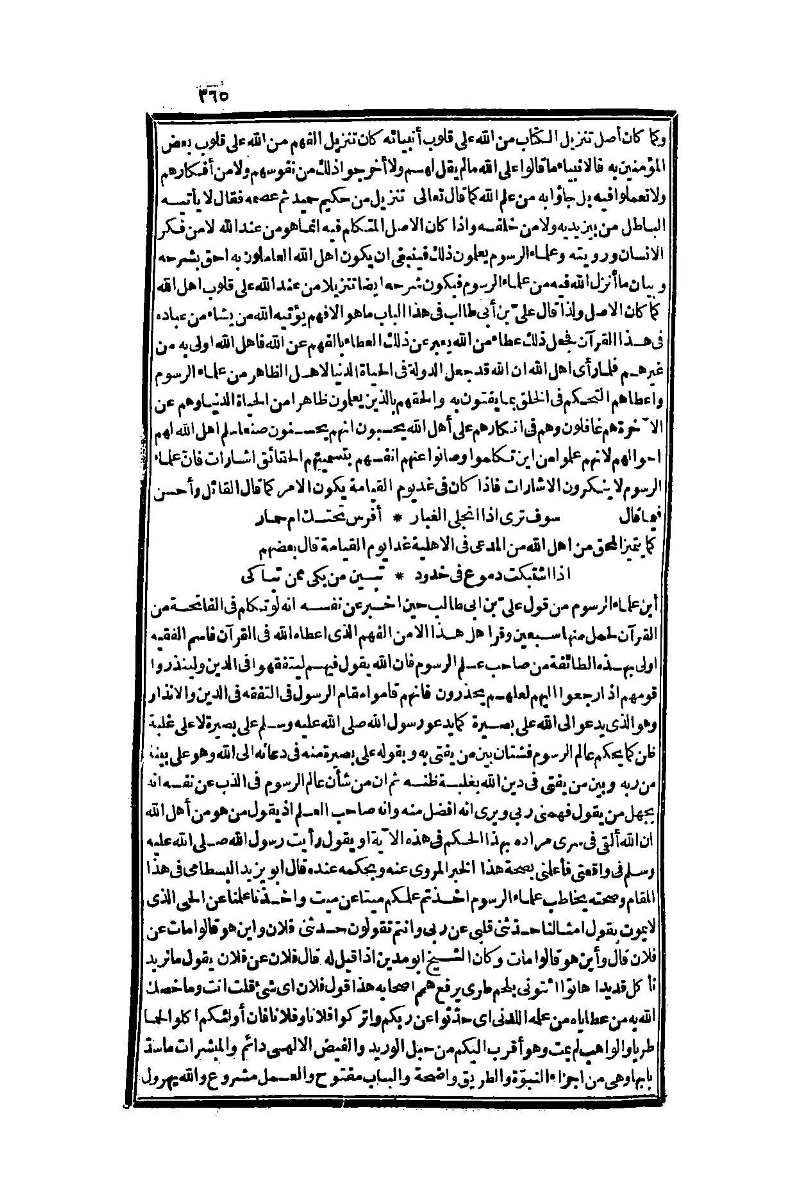 ٣٦٥
وكما كان أصل تنزيل الكتاب من الله على قلوب أنبيائه كان تنزيل الفهم من الله على قلوب بعض
المؤمنين به فالانبياء ما قالوا على الله ما لم يقل لهم ولا أخرجوا ذلك من نفوسهم ولا من أفكارهم
ولا تعملوا فيه بل جاؤا به من عند الله كما قال تعالى تنزيل من حكيم حميد ثم عصمه فقال لا يأتيه
الباطل من بين يديه ولا من خلفه واذا كان الاصل المتكلم فيه انما هو من عند الله لا من فكر
الانسان ورويته وعلماء الرسوم يعلمون ذلك فينبغى ان يكون اهل الله العاملون به احق بشرحه
وبيان ما أنزل الله فيه من علماء الرسوم فيكون شرحه ايضا تنزيلا من عند الله على قلوب اهل الله
كما كان الاصل ولذا قال على بن أبى طالب فى هذا الباب ما هو الا فهم يؤتيه الله من يشاء من عباده
فى هذا القرآن فجعل ذلك عطاء من الله يعبر عن ذلك العطاء بالفهم عن الله فاهل الله اولى به من
غيرهم فلما رأى اهل الله ان الله قد جعل الدولة فى الحياة الدنيا لاهل الظاهر من علماء الرسوم
واعطاهم التحكم فى الخلق بما يفتون به والحقهم بالذين يعلمون ظاهرا من الحياة الدنيا وهم عن
الآخرة هم غافلون وهم فى انكارهم على أهل الله يحسبون انهم يحسنون صنعا سلم اهل الله لهم
احوالهم لانهم علموا من اين تكلموا وصانوا عنهم انفسهم بتسميتهم الحقائق اشارات فان علماء
الرسوم لا ينكرون الاشارات فاذا كان فى غد يوم القيامة يكون الامر كما قال القائل وأحسن
فيما قال سوف ترى اذا انجلى الغبار * أفرس تحتك ام حمار
كما يتميز المحق من اهل الله من المدعى فى الاهلية غدا يوم القيامة قال بعضهم
اذا اشتبكت دموع فى خدود * تبين من بكى ممن تباكى
أين علماء الرسوم من قول على بن ابى طالب حين اخبر عن نفسه انه لو تكلم فى الفاتحة من
القرآن لحمل منها سبعين وقرا هل هذا الا من الفهم الذى اعطاه الله فى القرآن فاسم الفقيه
اولى بهذه الطائفة من صاحب علم الرسوم فان الله يقول فيهم ليتفقهوا فى الدين ولينذروا
قومهم اذا رجعوا اليهم لعلهم يحذرون فانهم قاموا مقام الرسول فى التفقه فى الدين والانذار
وهو الذى يدعو الى الله على بصيرة كما يدعو رسول الله صلى الله عليه وسلم على بصيرة لا على غلبة
ظن كما يحكم عالم الرسوم فشتان بين من يفتى به ويقوله على بصيرة منه فى دعائه الى الله وهو على بينة
من ربه وبين من يفتى فى دين الله بغلبة ظنه ثم ان من شأن عالم الرسوم فى الذب عن نفسه انه
يجهل من يقول فهمنى ربى ويرى انه افضل منه وانه صاحب العلم اذ يقول من هو من أهل الله
ان الله ألقى فى سرى مراده بهذا الحكم فى هذه الآية او يقول رأيت رسول الله صلى الله عليه
وسلم فى واقعتى فأعلنى بصحة هذا الخبر المروى عنه وبحكمه عنده قال ابو يزيد البسطامى فى هذا
المقام وصحته يخاطب علماء الرسوم اخذتم علمكم ميتا عن ميت واخذنا علمنا عن الحى الذى
لا يموت يقول امثالنا حدثنى قلبى عن ربى وانتم تقولون حدثنى فلان واين هو قالوا مات عن
فلان قال وأين هو قالوا مات وكان الشيخ ابو مدين اذا قيل له قال فلان عن فلان يقول ما نريد
نأكل قديدا هاتوا ائتونى بلحم طرى يرفع همم اصحابه هذا قول فلان اى شئ قلت انت وما خصك
الله به من عطاياه من علمه اللدنى اى حدثوا عن ربكم واتركوا فلانا وفلانا فان أولئكم اكلوا لحما
طريا والواهب لم يمت وهو أقرب اليكم من حبل الوريد والفيض الالهى دائم والمبشرات ما سد
بابها وهى من اجزاء النبوّة والطريق واضحة والباب مفتوح والعمل مشروع والله يهرول